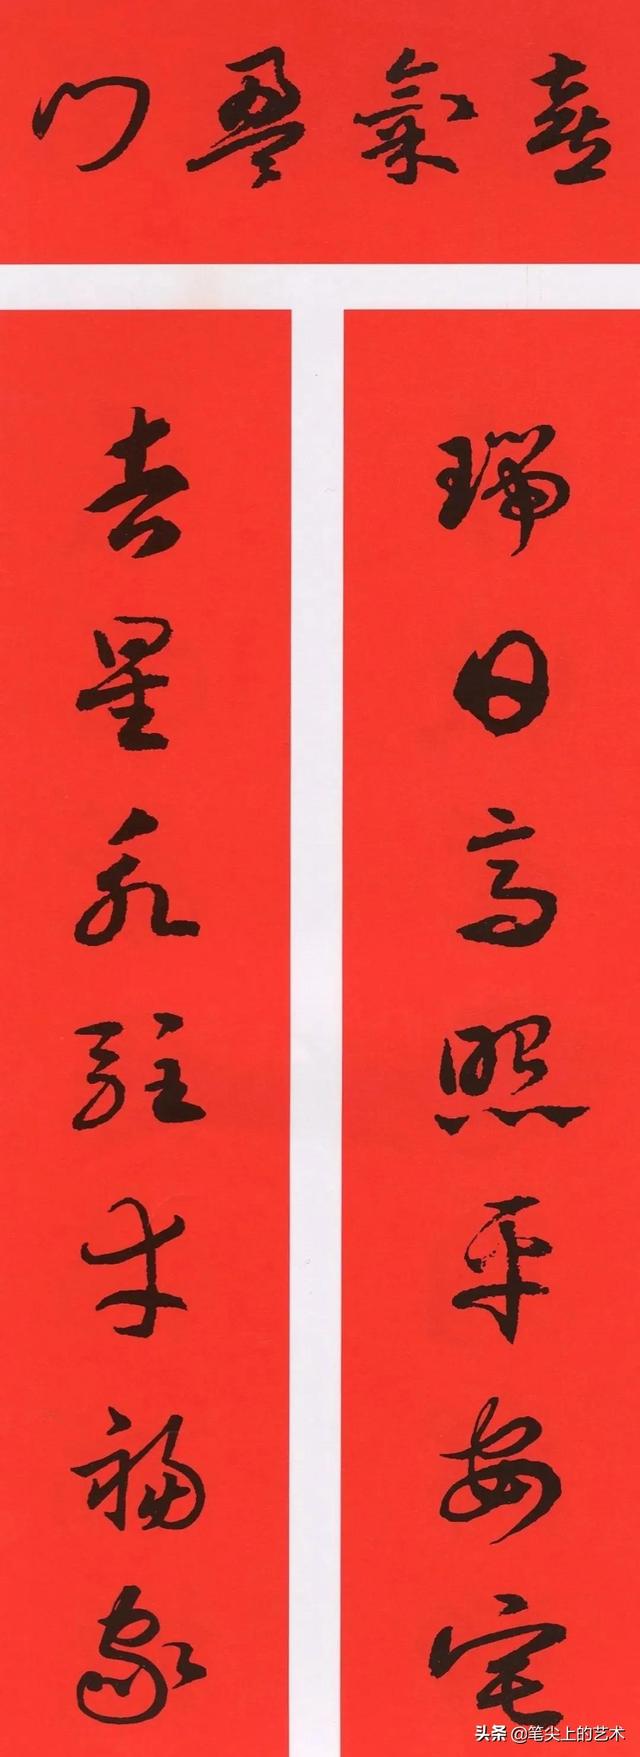 喜氣盈门
瑞日高照平安宅
吉星永駐幸福家
头条 @笔尖上的艺术